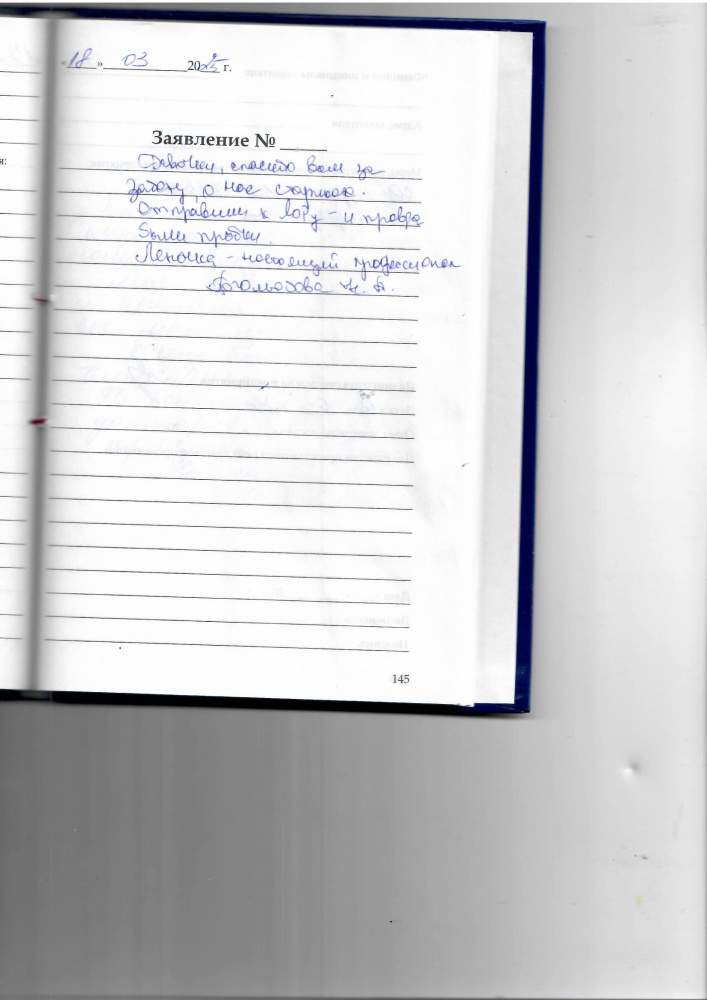 «18» 03 2025 г.
Заявление №
Девочки, спасибо вам за
заботу о нас старшою.
Отправили к лору - и правда
были пробки.
Леночка - настоящий профессионал
Н. А.
145